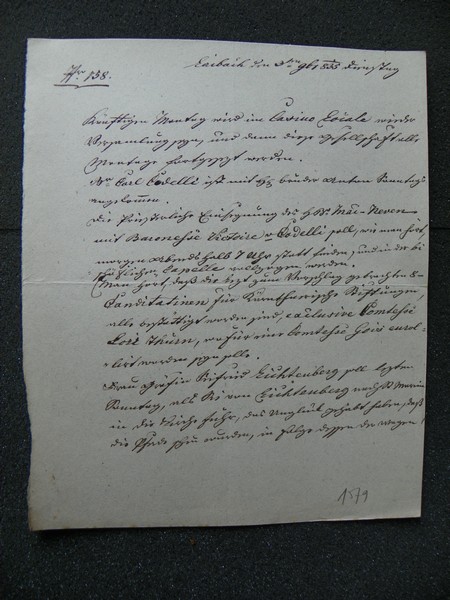 Nr 158.
Laibach den 3ten 9br 1835 Dienstag
Künftigen Montag wird im Casino Locale wieder
Versammlung seyn, und dann diese Gesellschaft alle
Montage fortgesetzt werden.
Carl Codelli ist mit Bruder Anton Sonntags
angekommen.
Die Priesterliche Einsegnung des H Mac-Neven
mit Baronesse Victoire v Codelli soll, wie man hört,
morgen Abends halb 7 Uhr statt finden, und in der bi-
schöflichen Capelle vollzogen werden.
Man hört, daß die letzt zum Vorschlag gebrachten
Canditatinen für Stiftungen
alle bestättigt worden sind, exclusive Comtesse
Lori Thurn, wofür eine Comtesse
worden seyn solle.
Frau Gräfin Lichtenberg soll letzten
Sonntag, als Sie von Lichtenberg nach Maria
in die Kirche fuhr, das Unglück gehabt haben, daß
die Pferde scheu wurden, in Folge dessen der Wagen
1579